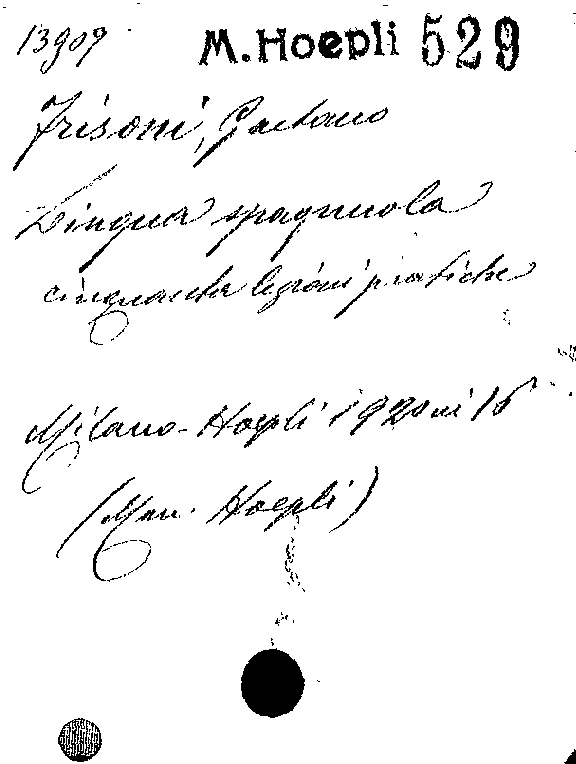 13909 M. Hoepli 529
Frisoni, Gaetano
Lingua spagnuola
cinquanta lezioni pratiche
Milano - Hoepli 1920 in 16°
(Man. Hoepli)